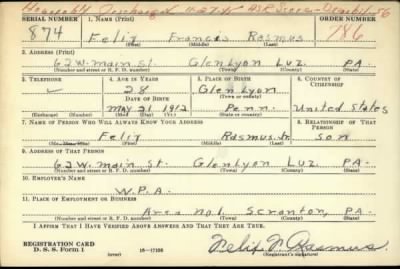 Honorably Discharged
SERIAL NUMBER 1. NAME (Print) ORDER NUMBER
874 Felix Francis Rasmus 786
(First) (Middle) (Last)
2. ADDRESS (Print)
62 W. main st. Glen Lyon Luz. PA.
(Number and street or R. F. D. number) (Town) (County) (State)
3. TELEPHONE 4. AGE IN YEARS 5. PLACE OF BIRTH 6. COUNTRY OF CITIZENSHIP
28 Glen Lyon
DATE OF BIRTH (Town or county)
May 21 1912 Penn. United States
(Exchange) (Number) (Mo.) (Day) (Yr.) (State or country)
7. NAME OF PERSON WHO WILL ALWAYS KNOW YOUR ADDRESS 8. RELATIONSHIP OF THAT PERSON
Felix Rasmus, Jr. son
(Mr., Mrs., Miss) (First) (Middle) (Last)
9. ADDRESS OF THAT PERSON
62 W. main st. Glen Lyon Luz. PA.
(Number and street or R. F. D. number) (Town) (County) (State)
10. EMPLOYER'S NAME
W.P.A.
11. PLACE OF EMPLOYMENT OR BUSINESS
Area no 1. Scranton, PA.
(Number and street or R. F. D. number) (Town) (County) (State)
I AFFIRM THAT I HAVE VERIFIED ABOVE ANSWERS AND THAT THEY ARE TRUE.
REGISTRATION CARD
D. S. S. Form 1 (over) 16—17105 (Registrant's signature)
Felix Rasmus